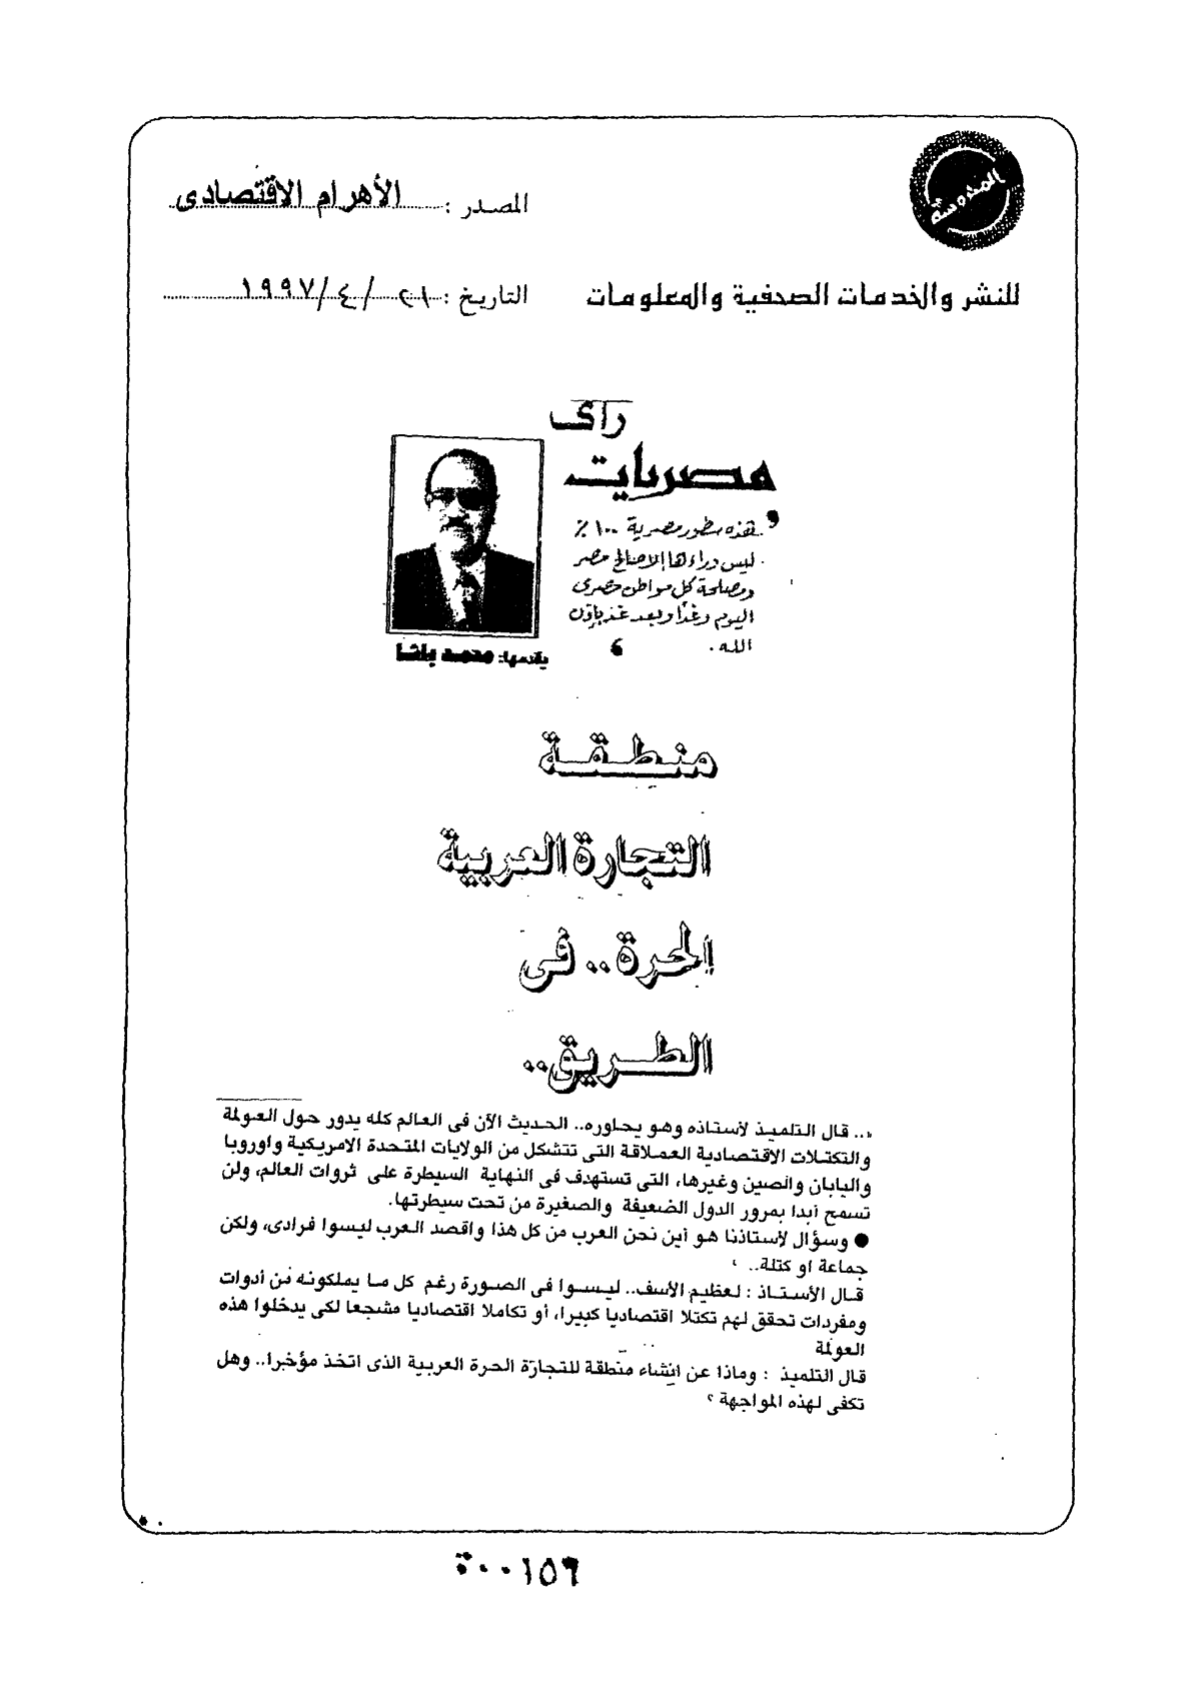 المحروسة
المصدر : الأهرام الاقتصادى
للنشر والخدمات الصحفية والمعلومات
التاريخ : ٢١ / ٤ / ١٩٩٧
رأى
مصريات
هذه سطور مصرية ١٠٠٪
ليس وراءها إلا صالح مصر
ومصلحة كل مواطن مصرى
اليوم وغدًا وبعد غد بإذن
الله .
يقدمها: محمد باشا
منطقة
التجارة العربية
الحرة .. فى
الطريق ..
.. قال التلميذ لأستاذه وهو يحاوره.. الحديث الآن فى العالم كله يدور حول العولمة
والتكتلات الاقتصادية العملاقة التى تتشكل من الولايات المتحدة الامريكية واوروبا
واليابان والصين وغيرها، التى تستهدف فى النهاية السيطرة على ثروات العالم، ولن
تسمح أبدا بمرور الدول الضعيفة والصغيرة من تحت سيطرتها.
● وسؤال لأستاذنا هو أين نحن العرب من كل هذا واقصد العرب ليسوا فرادى، ولكن
جماعة او كتلة..
قال الأستاذ : لعظيم الأسف.. ليسوا فى الصورة رغم كل ما يملكونه من أدوات
ومفردات تحقق لهم تكتلا اقتصاديا كبيرا، أو تكاملا اقتصاديا مشجعا لكى يدخلوا هذه
العولمة
قال التلميذ : وماذا عن انشاء منطقة للتجارة الحرة العربية الذى اتخذ مؤخرا.. وهل
تكفى لهذه المواجهة ؟
٠٠١٥٦